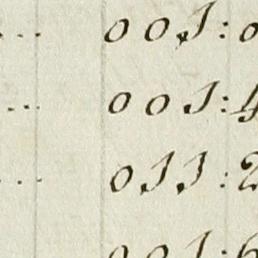 ... 001:0
... 001:4
... 011:2
001:6